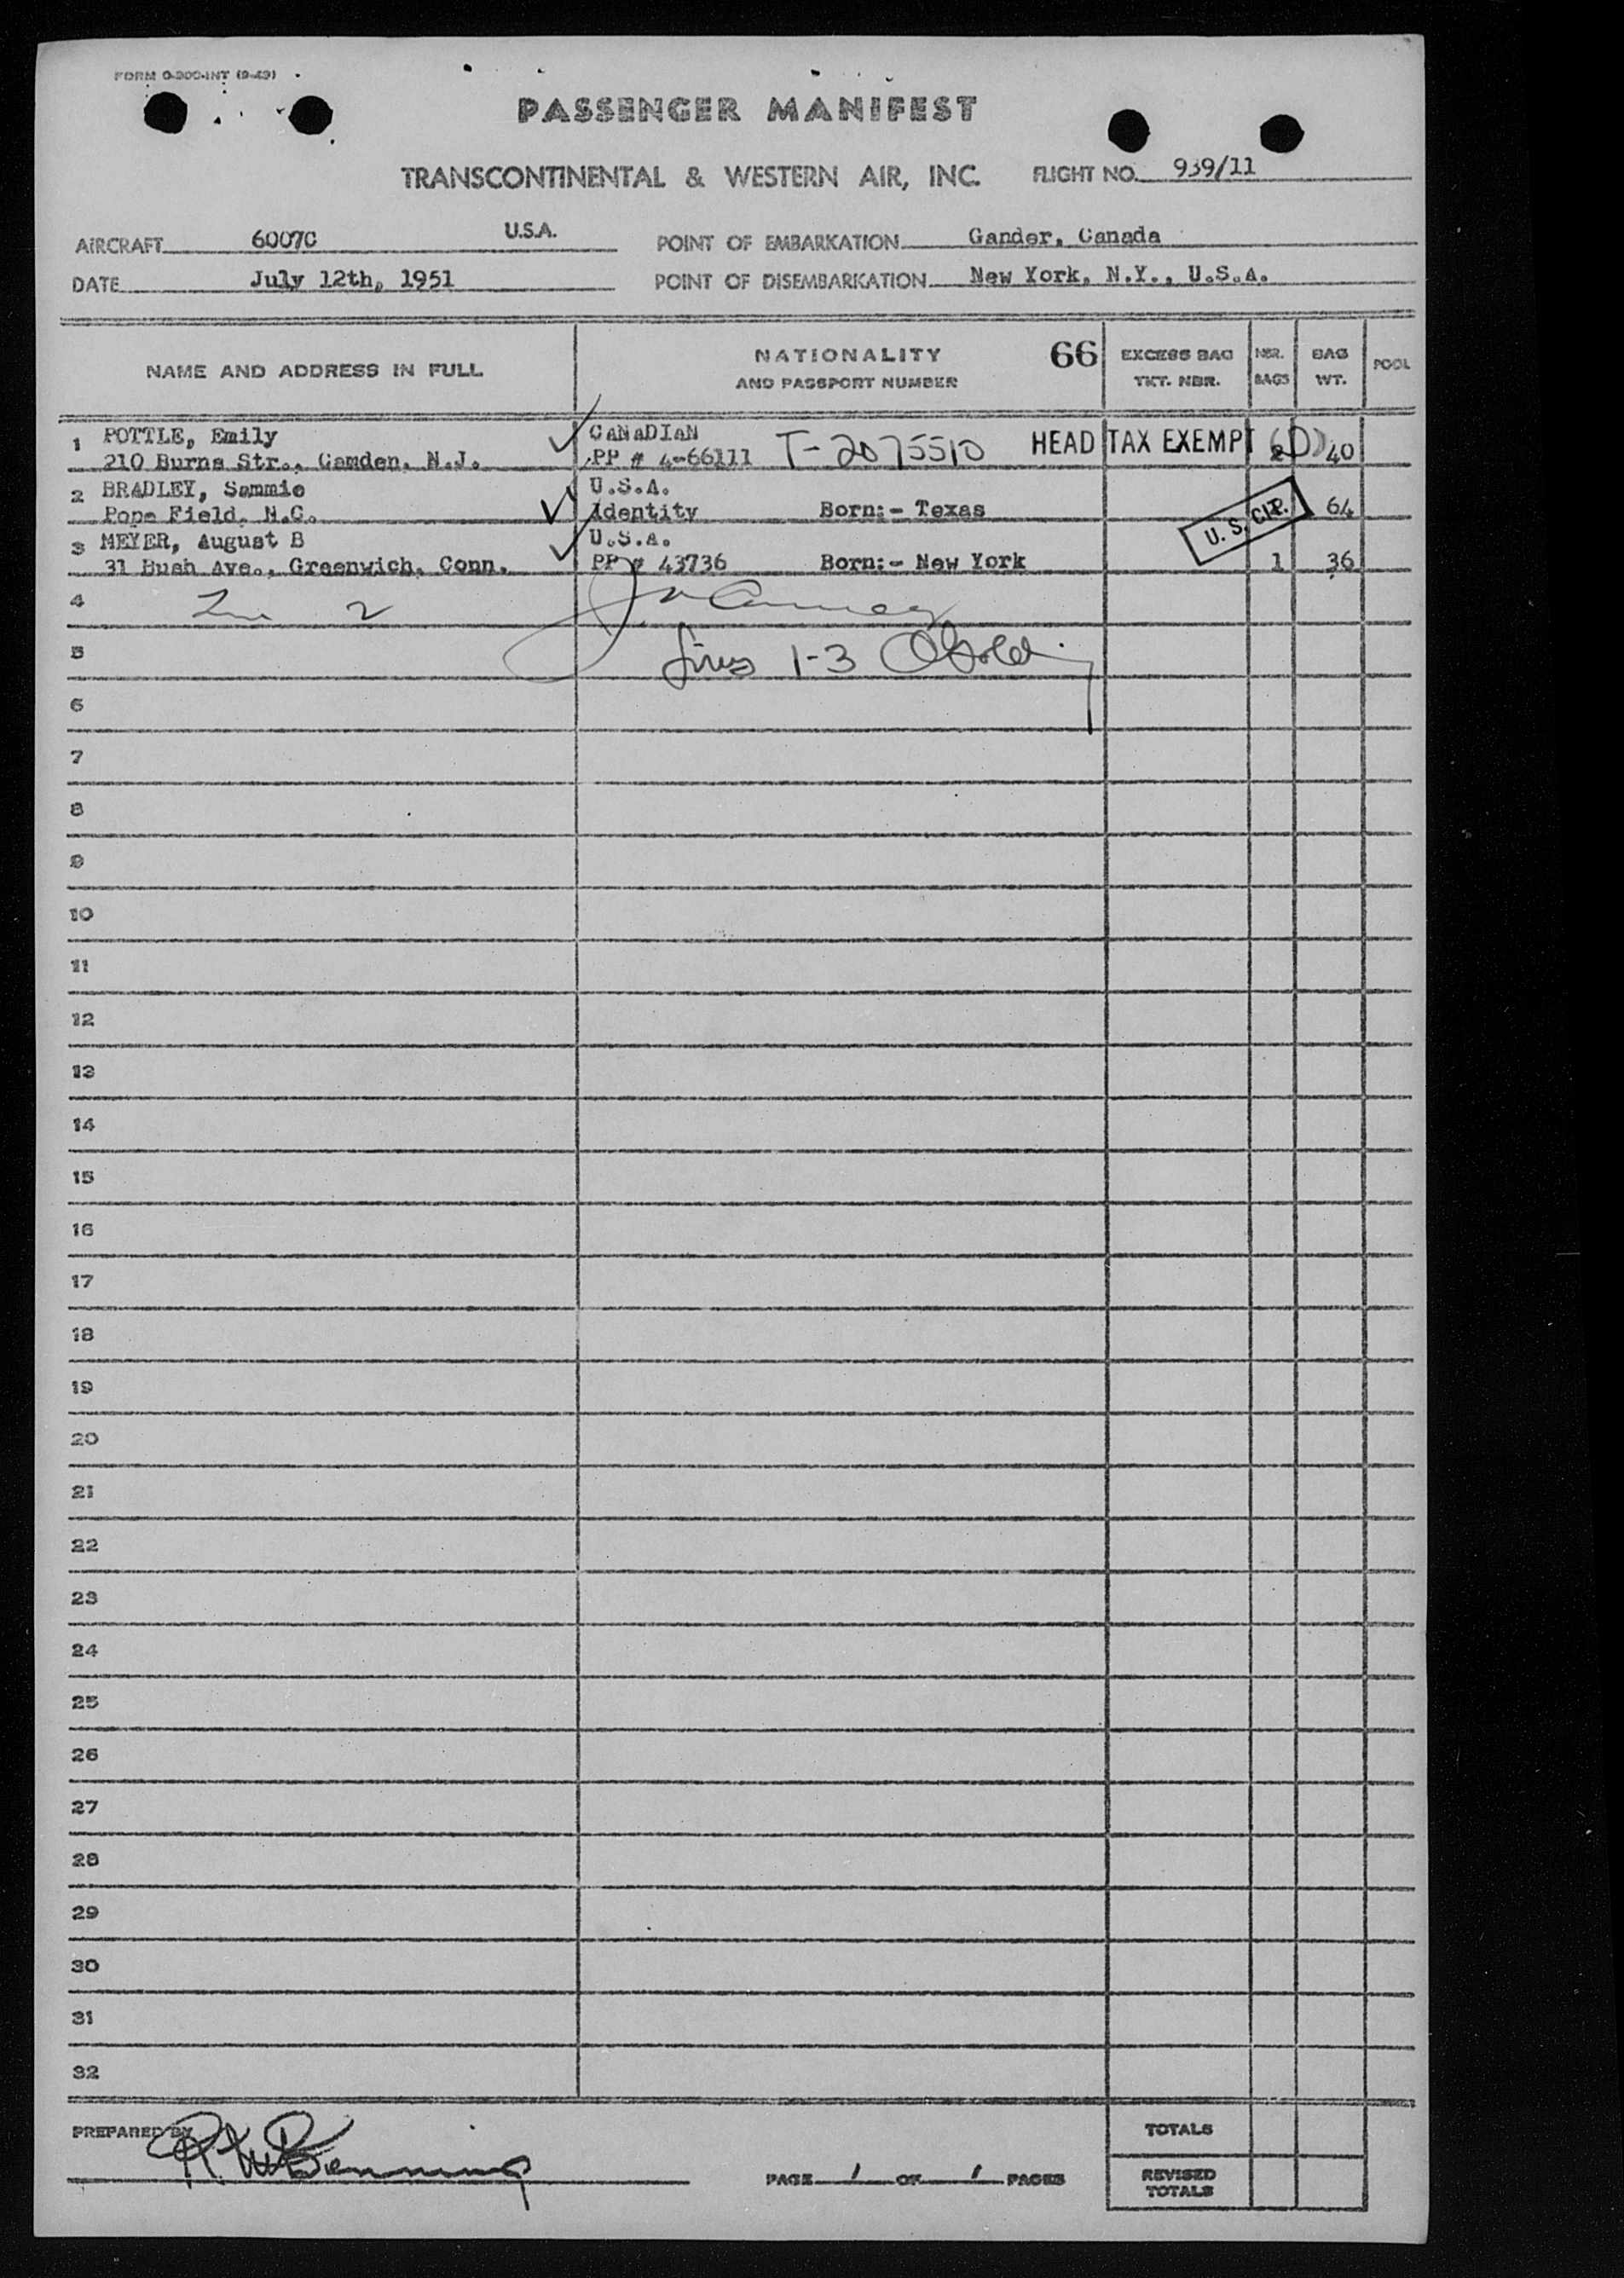 FORM O-300-INT (9-49)
PASSENGER MANIFEST
TRANSCONTINENTAL & WESTERN AIR, INC. FLIGHT NO. 939/11
AIRCRAFT 6007C U.S.A. POINT OF EMBARKATION Gander, Canada
DATE July 12th, 1951 POINT OF DISEMBARKATION New York, N.Y., U.S.A.
NAME AND ADDRESS IN FULL NATIONALITY AND PASSPORT NUMBER 66 EXCESS BAG TKT. NBR. NBR. BAGS BAG WT. POOL
1 POTTLE, Emily CANADIAN
210 Burns Str., Camden, N.J. PP # 4-66111 T-2075510 HEAD TAX EXEMPT (D) 2 40
2 BRADLEY, Sammie U.S.A.
Pope Field, N.C. Identity Born:- Texas U.S. CIT. 64
3 MEYER, August B U.S.A.
31 Bush Ave., Greenwich, Conn. PP # 43736 Born:- New York 1 36
4 2
5 Lines 1-3
6
7
8
9
10
11
12
13
14
15
16
17
18
19
20
21
22
23
24
25
26
27
28
29
30
31
32
PREPARED BY TOTALS
PAGE 1 OF 1 PAGES REVISED TOTALS